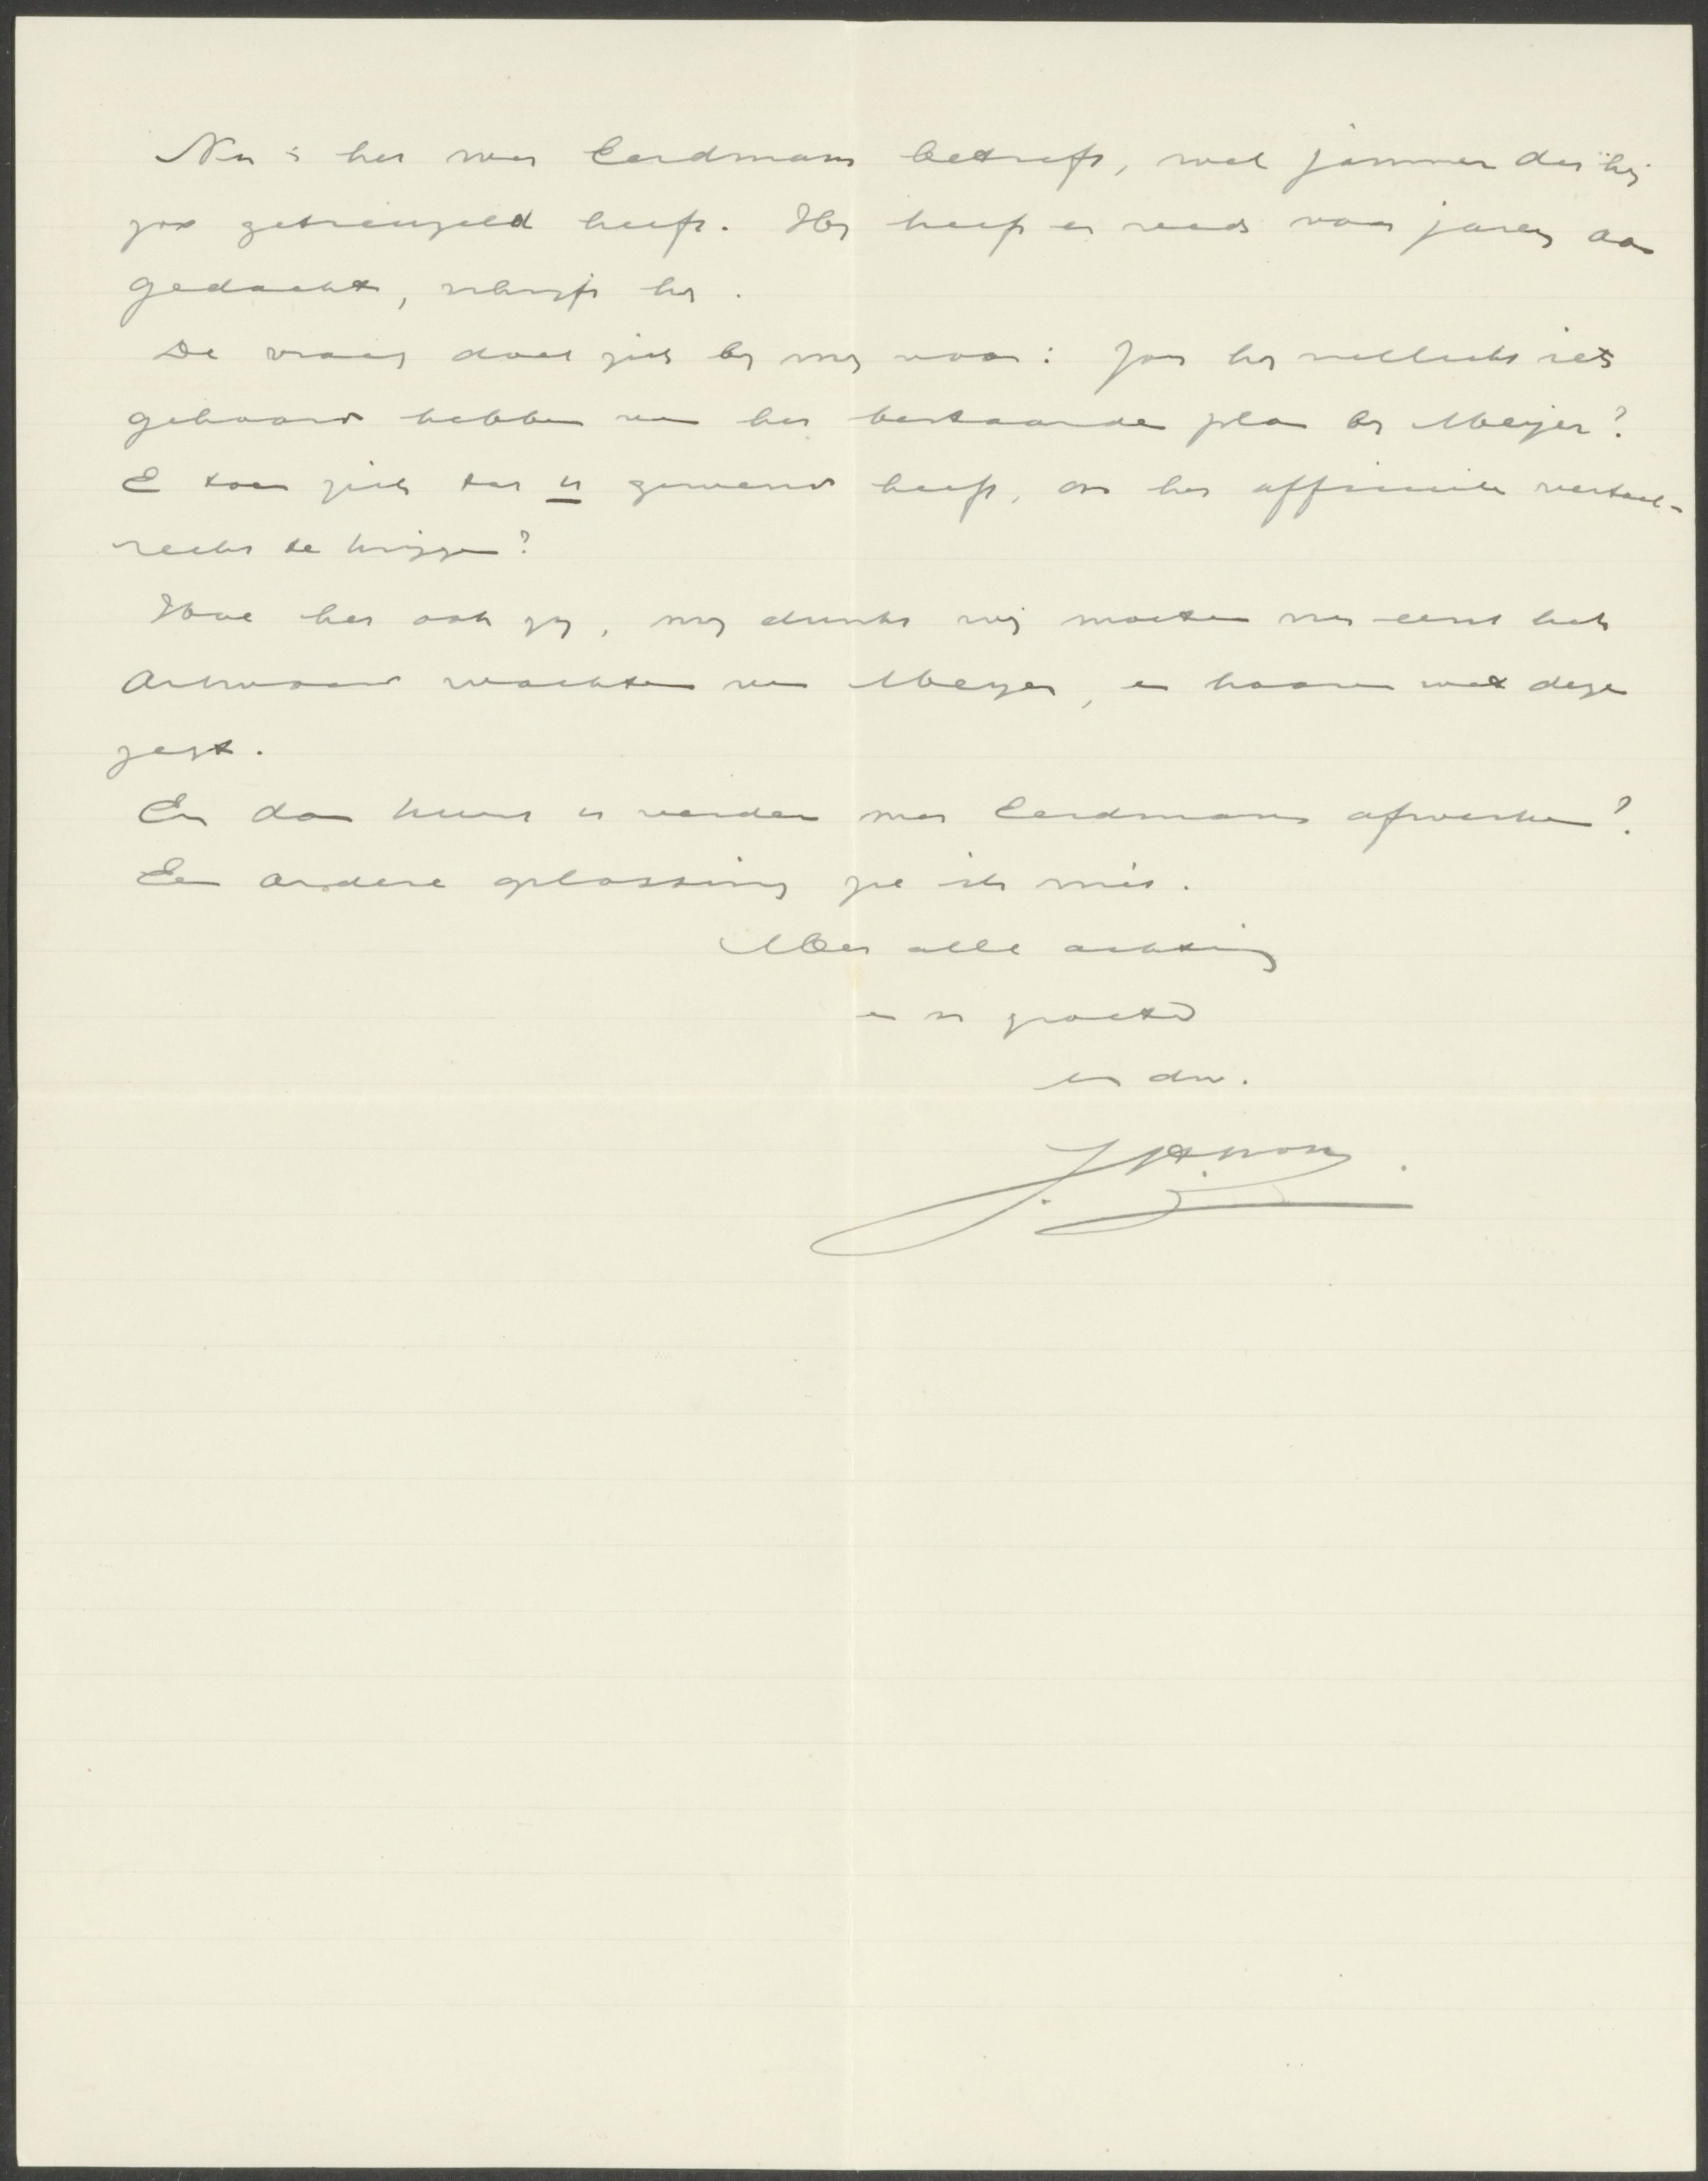 Nu is het wat Eerdmans betreft, wel jammer dat hij
zoo getreuzeld heeft. Hij heeft er reeds voor jaren aan
gedacht, schrijft hij.
De vraag doet zich bij mij voor: Zou hij wellicht iets
gehoord hebben van het bestaande plan bij Meijer?
En toen zich tot u gewend heeft, om het officieele vertaal-
recht te krijgen?
Hoe het ook zij, mij dunkt wij moeten nu eerst het
antwoord wachten van Meijer, en hooren wat deze
zegt.
En dan kunt u verder met Eerdmans afwerken?
Een andere oplossing zie ik niet.
Met alle achting
en vr groeten
uw dw.